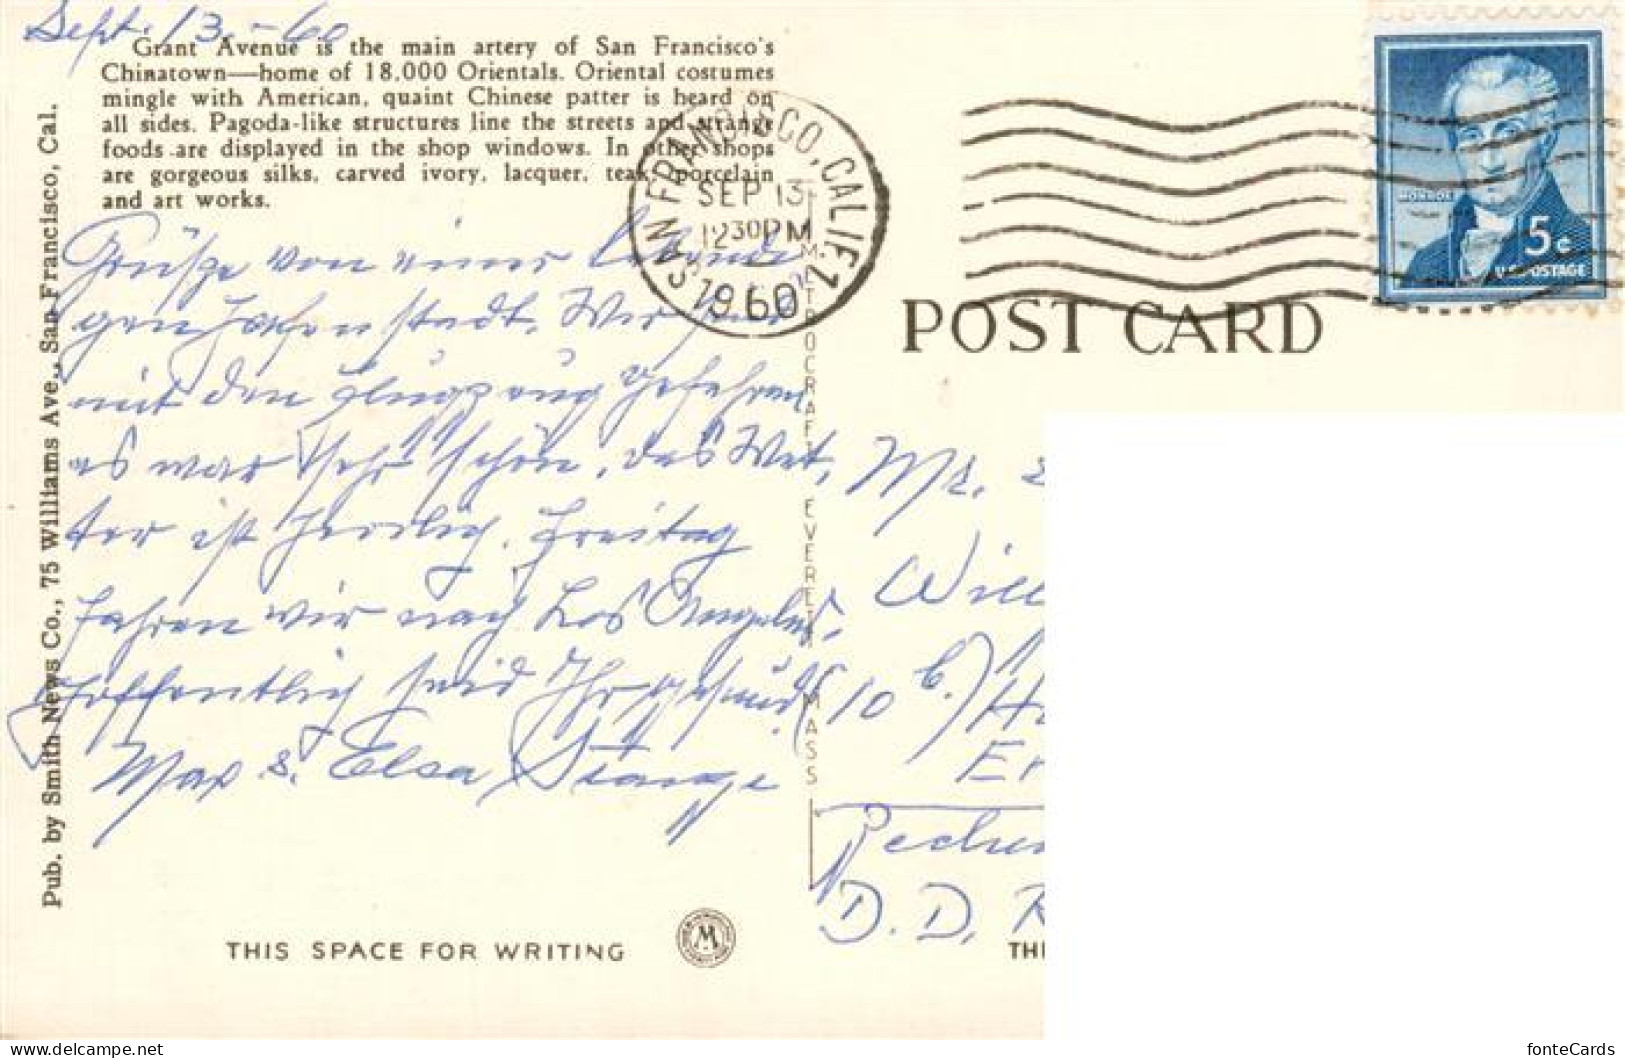 Sept. 13.-60
Grant Avenue is the main artery of San Francisco's
Chinatown—home of 18,000 Orientals. Oriental costumes
mingle with American, quaint Chinese patter is heard on
all sides. Pagoda-like structures line the streets and strange
foods are displayed in the shop windows. In other shops
are gorgeous silks, carved ivory, lacquer, teak, porcelain
and art works.
Grüße von einer
Hafenstadt. Wir sind
mit den Flugzeug gefahren
es war sehr schön, das Wet,
ter ist herrlich. Freitag
fahren wir nach Los Angeles.
Hoffentlich seid Ihr gesund
Max & Elsa Stange
THIS SPACE FOR WRITING
Pub. by Smith News Co., 75 Williams Ave., San Francisco, Cal.
M
METROCRAFT EVERETT MASS
SAN FRANCISCO, CALIF. 1
SEP 13
12 30 PM
1960
POST CARD
MONROE
5c
U.S. POSTAGE
Mr.
Will
(10 b.)
D. D. R
THI
delcampe.net
fonteCards